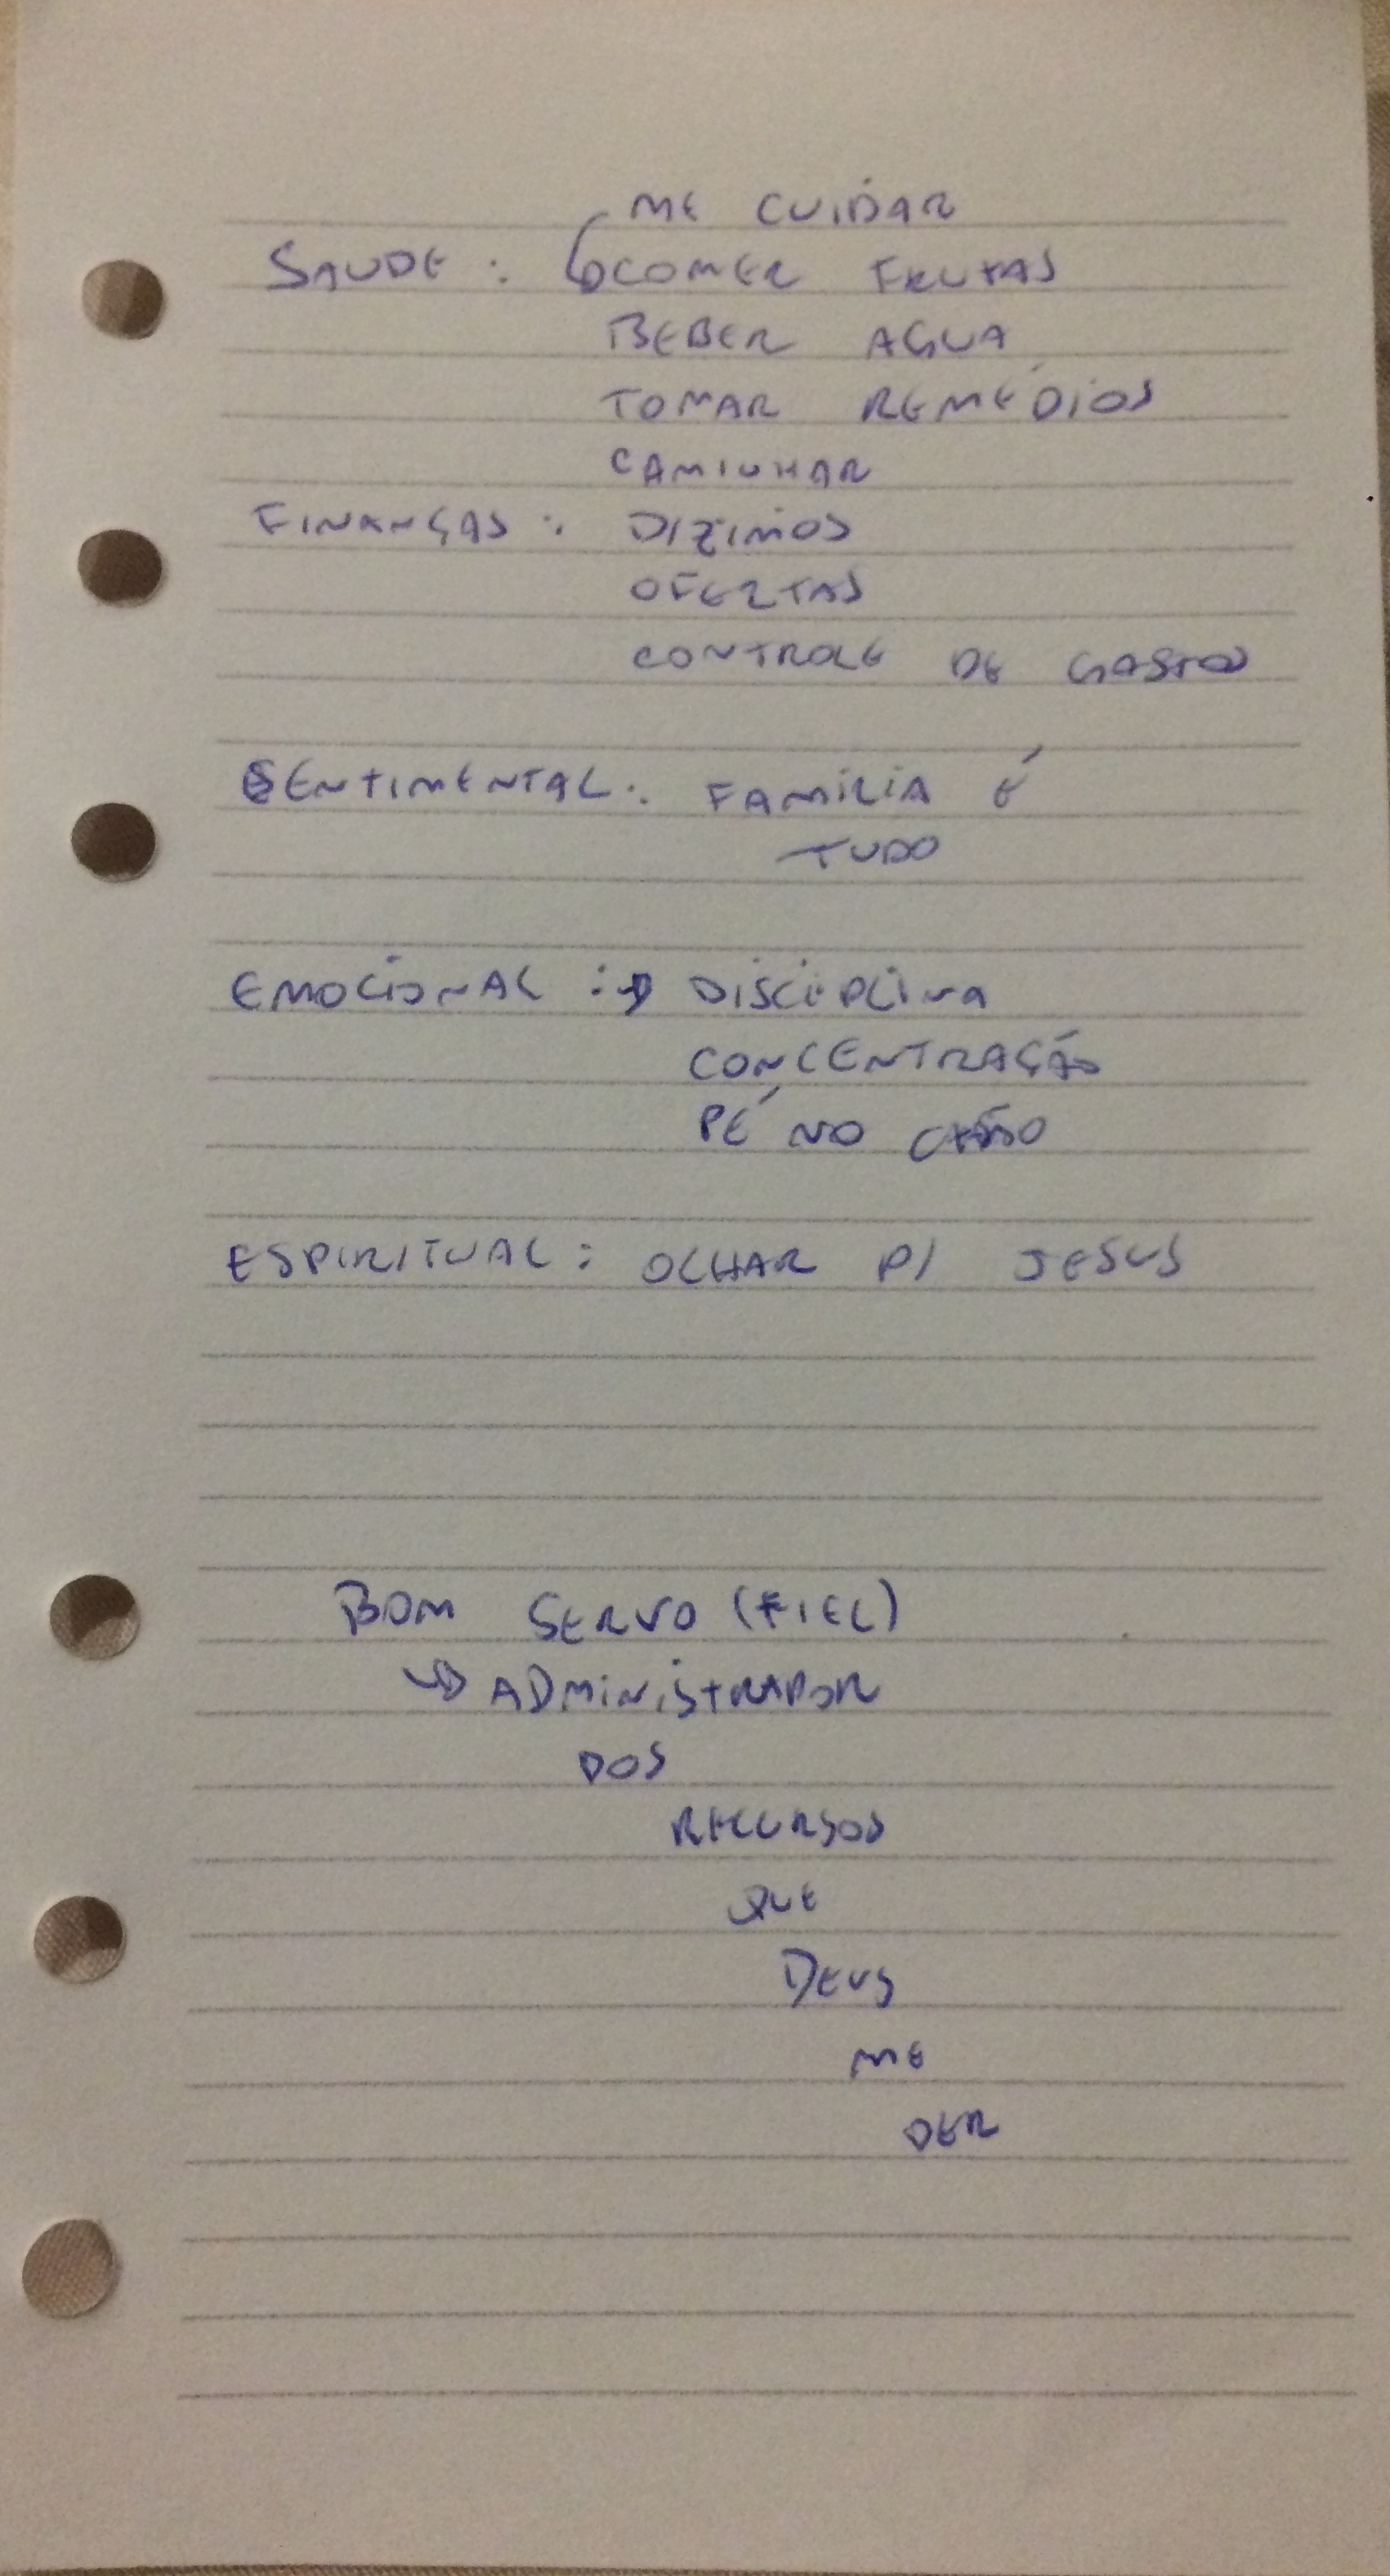 ME CUIDAR
SAUDE : COMER FRUTAS
BEBER AGUA
TOMAR REMÉDIOS
CAMINHAR
FINANÇAS : DIZIMOS
OFERTAS
CONTROLE DE GASTOS
SENTIMENTAL : FAMILIA É
TUDO
EMOCIONAL : → DISCIPLINA
CONCENTRAÇÃO
PÉ NO CHÃO
ESPIRITUAL : OLHAR P/ JESUS
BOM SERVO (FIEL)
↳ ADMINISTRADOR
DOS
RECURSOS
QUE
DEUS
ME
DER